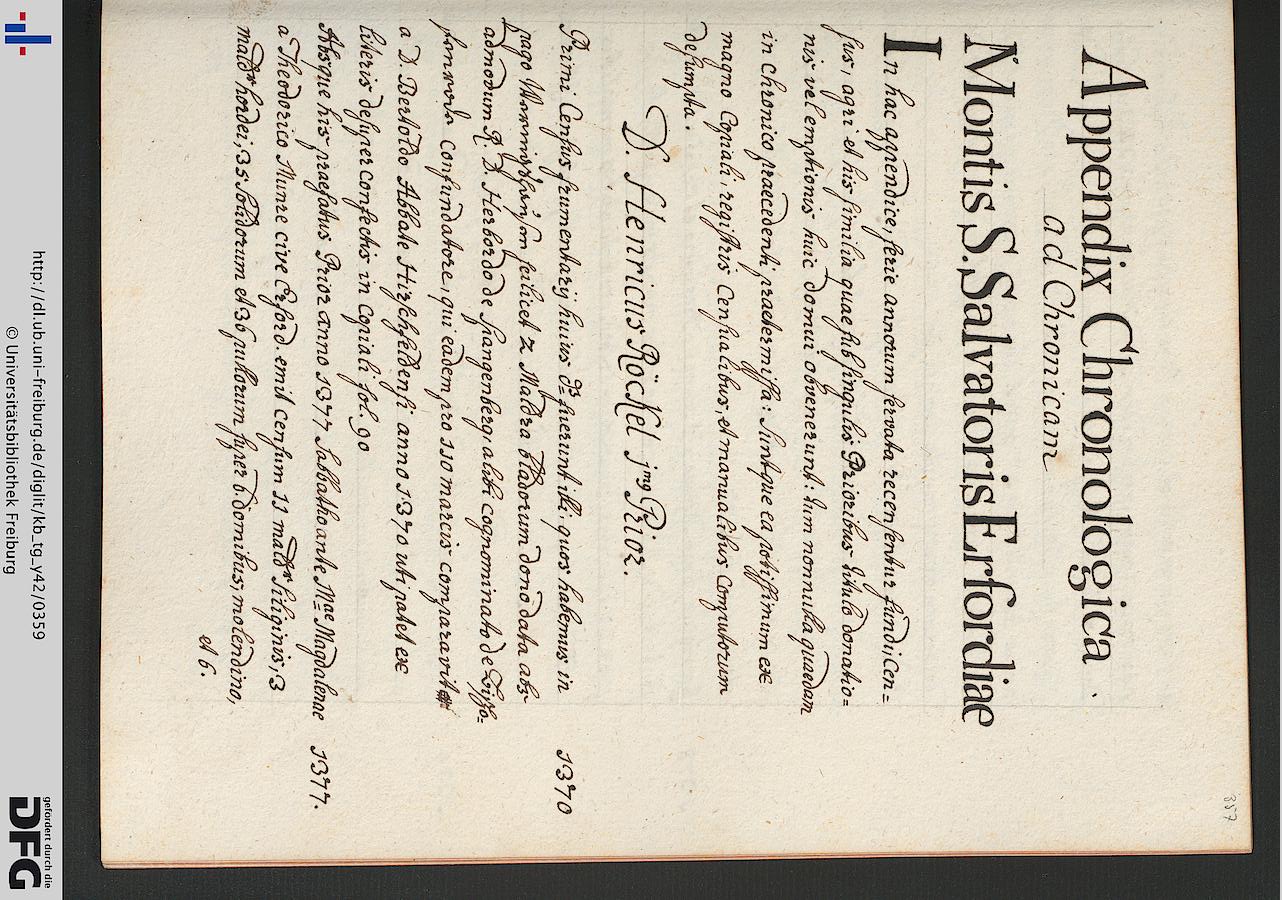 357
Appendix Chronologica
ad Chronicam
Montis S. Salvatoris Erfordiae
In hac appendice, serie annorum servata recensentur fundi, Cen=
sus, agri et his similia quae sub singulis Prioribus titulo donatio=
nis vel emptionis huic domui obvenerunt: tum nonnulla quaedam
in Chronico praecedenti praetermissa: Suntque ea potissimum ex
magno Copiali, registris Censualibus, et manualibus Computorum
desumpta.
D. Henricus Röckel jmg Prior.
Primi Census frumentarij huius ds fuerunt illi quos habemus in 1370
pago scilicet 2 Maldra bladorum dono data abs
admodum R. D. Herbordo de Spangenberg, alibi cognominato de
confundatore, qui eadem pro 110 marcis comparavit
a D. Bertoldo Abbate Hirschfeldensi anno 1370 uti patet ex
literis desuper confectis in Copiali fol. 90
Absque his praefatus Prior anno 1377 Sabbatho ante Mae Magdalenae 1377.
a Theodorico Munre cive Erford. emit censum 11 maldr Siliginis, 3
maldr hordei, 35 Solidorum et 36 pullorum super 6 domibus, molendino,
et 6.
http://dl.ub.uni-freiburg.de/diglit/kb_tg_y42/0359
© Universitätsbibliothek Freiburg
gefördert durch die
DFG